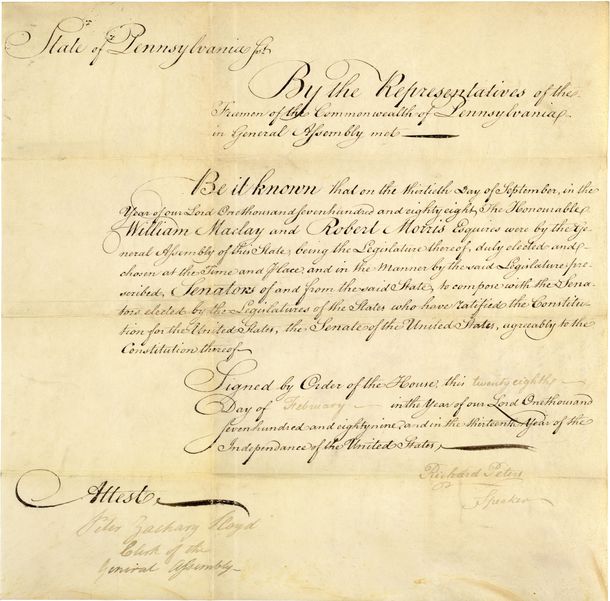 State of Pennsylvania sst
By the Representatives of the
Freemen of the Commonwealth of Pennsylvania
in General Assembly met
Be it known that on the thirtieth Day of September, in the
Year of our Lord One thousand seven hundred and eighty eight, The Honourable
William Maclay and Robert Morris Esquires were by the Ge
neral Assembly of this State, being the Legislature thereof, duly elected and
chosen at the Time and Place, and in the Manner by the said Legislature pre
scribed, Senators of and from the said State, to compose with the Sena
tors elected by the Legislatures of the States who have ratified the Constitu
tion for the United States, the Senate of the United States, agreeably to the
Constitution thereof
Signed by Order of the House, this twenty eighth
Day of February in the Year of our Lord One thousand
seven hundred and eighty nine, and in the thirteenth Year of the
Independance of the United States,
Richard Peters
Speaker
Attest
Peter Zachary Lloyd
Clerk of the
General Assembly